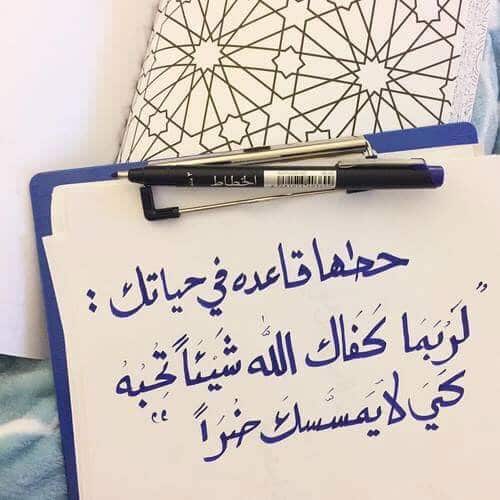 الخطاط
حطها قاعده في حياتك :
" لَرُبَمَا كَفَاك الله شَيْئَاً تُحِبُهُ
كَيَ لا يَمسَسكَ ضُرَاً "